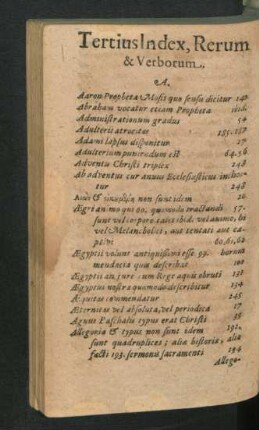 Tertius Index, Rerum
& Verborum.
A.
Aaron Propheta Mosis quo sensu dicitur 142
Abraham vocatur etiam Propheta ibid.
Administrationum gradus 54
Adulterii atrocitas 155.157
Adami lapsus disponitur 27
Adulterium puniendum est 64.56
Adventu Christi 248
Ab adventus cur annus Ecclesiasticus inchoe-
tur 248
non sunt idem 26
Ægri animo qui 60. quomodo tractandi 57.
sunt vel corpore tales ibid. vel animo, hi
vel Melancholici, aut tentati aut ca-
ptivi 60,61,62
Ægyptii volunt antiquissimi esse 99. horum
mendacia quæ describit 100
Ægyptii an jure cum Rege aquis obruti 132
Ægyptus nostra quomodo describitur 154
Æquitas commendatur 245
Æternitas vel absoluta, vel periodica 17
Agnus Paschalis typus erat Christi 38
Allegoria & typus non sunt idem 192.
sunt quadruplices; alia historia, alia
facti 193. sermonis sacramenti 194
Allego-